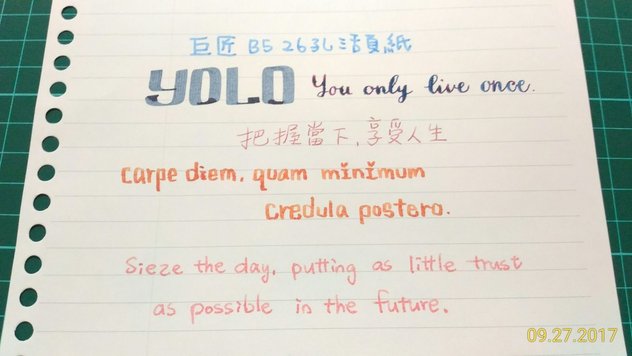 巨匠 B5 263L 活頁紙
YOLO You only live once.
把握當下,享受人生
carpe diem, quam minimum
credula postero.
Sieze the day, putting as little trust
as possible in the future.
09.27.2017